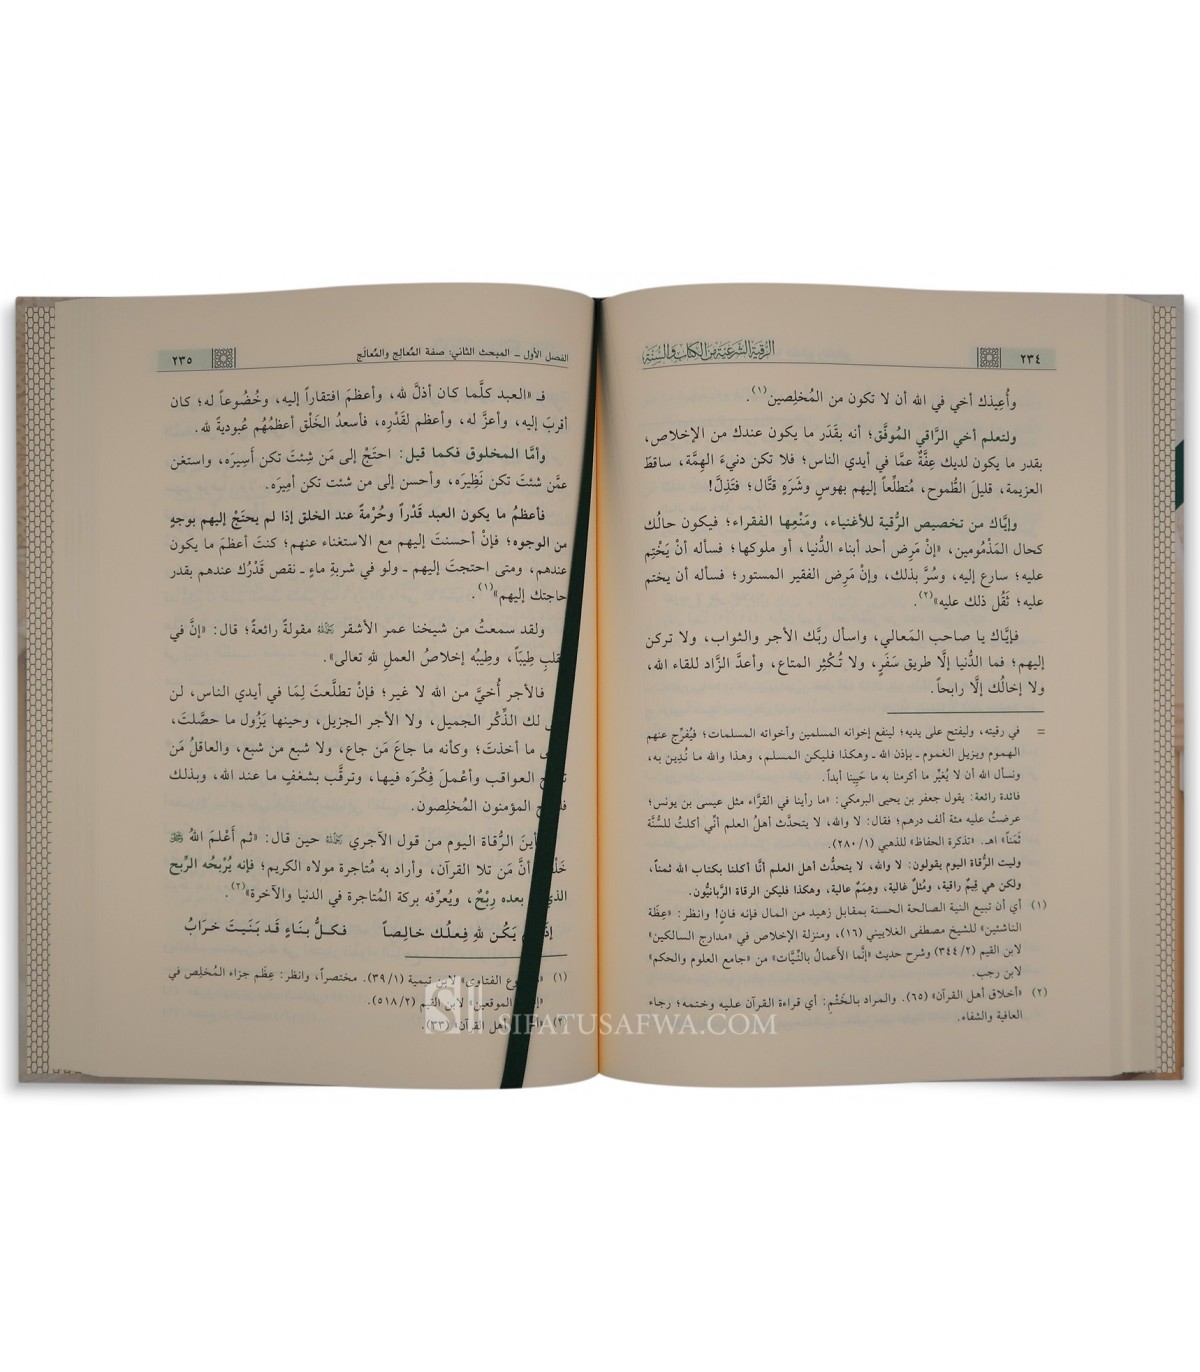 ٢٣٤
الرقية الشرعية من الكتاب والسنة
وأُعِيذك أخي في الله أن لا تكون من المُخلِصين(١).
ولتعلم أخي الرَّاقي المُوفَّق؛ أنه بقَدَر ما يكون عندك من الإخلاص،
بقدر ما يكون لديك عِفَّةٌ عمَّا في أيدي الناس؛ فلا تكن دنيءَ الهِمَّة، ساقطَ
العزيمة، قليلَ الطُّموح، مُتطلِّعاً إليهم بهوسٍ وشَرَهٍ قتَّال؛ فتَذِلَّ!
وإيَّاك من تخصيص الرُّقية للأغنياء، ومَنْعِها الفقراء؛ فيكون حالُك
كحال المَذْمُومين، «إنْ مَرِض أحد أبناء الدُّنيا، أو ملوكها؛ فسأله أنْ يَخْتِم
عليه؛ سارع إليه، وسُرَّ بذلك، وإنْ مَرِض الفقير المستور؛ فسأله أن يختم
عليه؛ ثَقُل ذلك عليه»(٢).
فإيَّاك يا صاحب المَعالي، واسأل ربَّك الأجر والثواب، ولا تركن
إليهم؛ فما الدُّنيا إلَّا طريق سَفَرٍ، ولا تُكْثِر المتاع، وأعدَّ الزَّاد للقاء الله،
ولا إخالُك إلَّا رابحاً.
= في رقيته، وليفتح على يديه؛ لينفع إخوانه المسلمين وأخواته المسلمات؛ فيُفرِّج عنهم
الهموم ويزيل الغموم ـ بإذن الله ـ وهكذا فليكن المسلم، وهذا والله ما نُدِين به،
ونسأل الله أن لا يُغيِّر ما أكرمنا به ما حَيِينا أبداً.
فائدة رائعة: يقول جعفر بن يحيى البرمكي: «ما رأينا في القرَّاء مثل عيسى بن يونس؛
عرضتُ عليه مئة ألف درهم؛ فقال: لا والله، لا يتحدَّث أهلُ العلم أنِّي أكلتُ للسُّنَّة
ثَمَناً» اهـ. «تذكرة الحفاظ» للذهبي (٢٨٠/١).
وليت الرُّقاة اليوم يقولون: لا والله، لا يتحدَّث أهل العلم أنَّا أكلنا بكتاب الله ثمناً،
ولكن هي قِيَمٌ راقية، ومُثُلٌ غالية، وهِمَمٌ عالية، وهكذا فليكن الرقاة الرَّبانيُّون.
(١) أي أن تبيع النية الصالحة الحسنة بمقابل زهيد من المال فإنه فانٍ! وانظر: «عِظَة
الناشئين» للشيخ مصطفى الغلاييني (١٦)، ومنزلة الإخلاص في «مدارج السالكين»
لابن القيم (٣٤٤/٢) وشرح حديث «إنَّما الأعمالُ بالنِّيَّات» من «جامع العلوم والحكم»
لابن رجب.
(٢) «أخلاق أهل القرآن» (٦٥). والمراد بالخَتْمِ: أي قراءة القرآن عليه وختمه؛ رجاء
العافية والشفاء.
الفصل الأول ـ المبحث الثاني: صفة المُعالِج والمُعالَج
٢٣٥
فـ «العبد كلَّما كان أذلَّ لله، وأعظمَ افتقاراً إليه، وخُضُوعاً له؛ كان
أقربَ إليه، وأعزَّ له، وأعظم لقَدْرِه، فأسعدُ الخَلْق أعظمُهُم عُبوديةً لله.
وأمَّا المخلوق فكما قيل: احتَجْ إلى مَن شِئتَ تكن أَسِيرَه، واستغن
عمَّن شئتَ تكن نَظِيرَه، وأحسن إلى من شئت تكن أمِيرَه.
فأعظمُ ما يكون العبد قَدْراً وحُرْمةً عند الخلق إذا لم يحتَجْ إليهم بوجهٍ
من الوجوه؛ فإنْ أحسنتَ إليهم مع الاستغناء عنهم؛ كنتَ أعظمَ ما يكون
عندهم، ومتى احتجتَ إليهم ـ ولو في شربةِ ماءٍ ـ نقص قَدْرُك عندهم بقدر
حاجتك إليهم»(١).
ولقد سمعتُ من شيخنا عمر الأشقر رحمه الله مقولةً رائعةً؛ قال: «إنَّ في
طِيباً، وطِيبُه إخلاصُ العملِ للهِ تعالى».
فالأجر أُخيَّ من الله لا غير؛ فإنْ تطلَّعتَ لِمَا في أيدي الناس، لن
لك الذِّكْر الجميل، ولا الأجر الجزيل، وحينها يَزُول ما حصَّلت،
ما أخذتَ؛ وكأنه ما جاعَ مَن جاع، ولا شبع من شبع، والعاقلُ مَن
العواقب وأعْملَ فِكْرَه فيها، وترقَّب بشغفٍ ما عند الله، وبذلك
المؤمنون المُخلِصون.
أينَ الرُّقاة اليوم من قول الآجري رحمه الله حين قال: «ثم أَعْلمَ اللهُ ﷻ
أنَّ مَن تلا القرآن، وأراد به مُتاجرة مولاه الكريم؛ فإنه يُرْبحُه الرِّبح
الذي بعده رِبْحٌ، ويُعرِّفه بركة المُتاجرة في الدنيا والآخرة»(٢).
يَكُن للهِ فِعلُك خالِصاً فكلُّ بناءٍ قَد بَنَيتَ خرابُ
(١) الفتاوى» لابن تيمية (٣٩/١). مختصراً، وانظر: عِظَم جزاء المُخلِص في
الموقعين» لابن القيم (٥١٨/٢).
(٢) أهل القرآن» (٢٣).
SIFATUSAFWA.COM